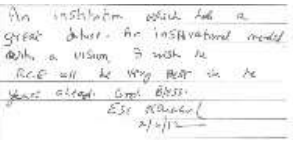 An institution which has a
great future. An inspirational model
with a vision. I wish the
R.C.E will be very best in the
years ahead. God Bless.
2/2/12